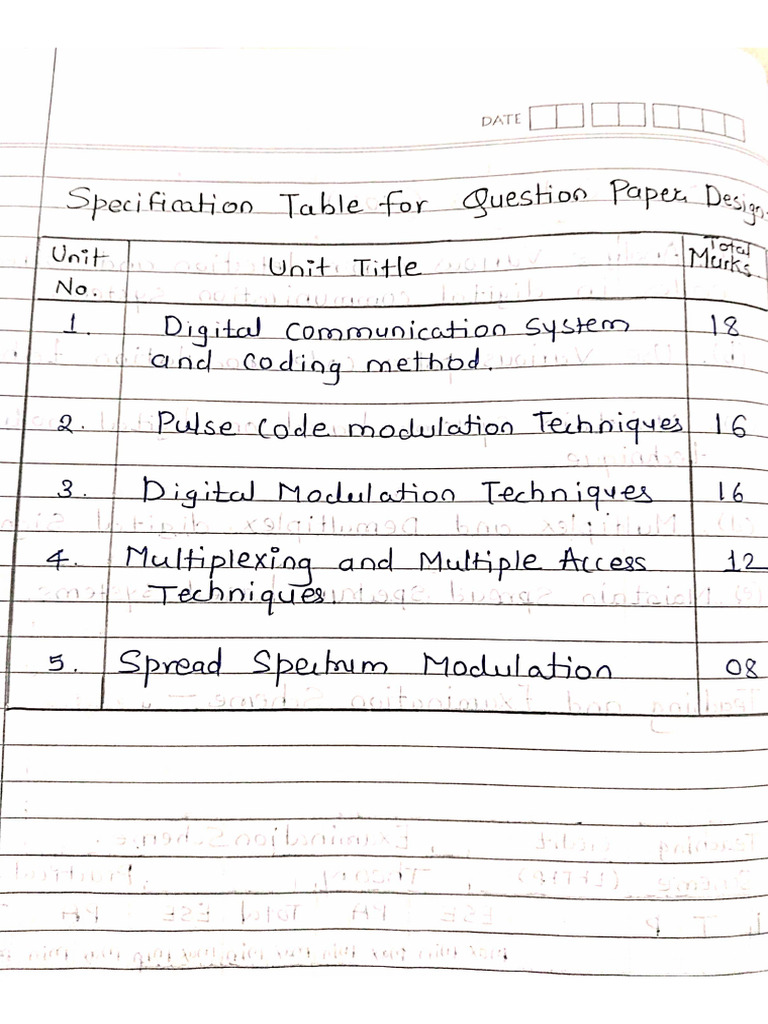 DATE
Specification Table for Question Paper Design.
Unit No. Unit Title Total Marks
1. Digital Communication System 18
and Coding method.
2. Pulse Code modulation Techniques 16
3. Digital Modulation Techniques 16
4. Multiplexing and Multiple Access 12
Techniques.
5. Spread Spectrum Modulation 08